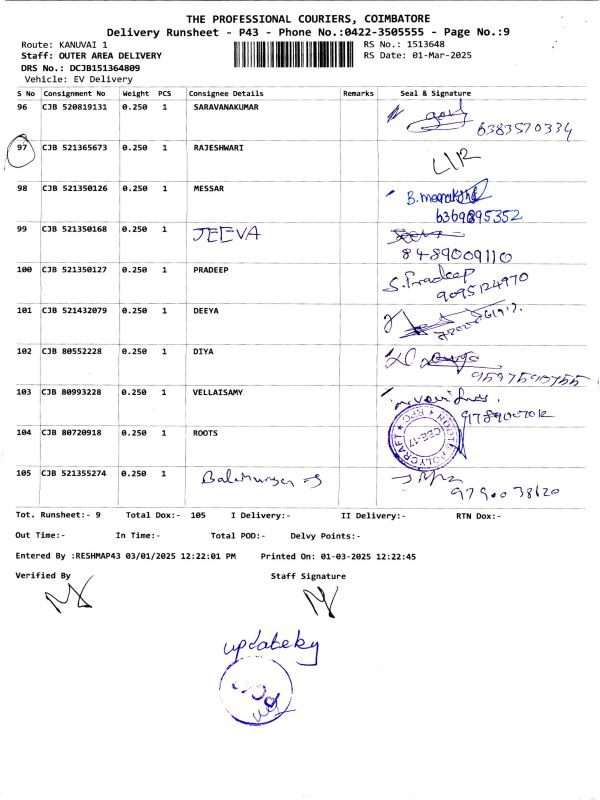 THE PROFESSIONAL COURIERS, COIMBATORE
Delivery Runsheet - P43 - Phone No.:0422-3505555 - Page No.:9
Route: KANUVAI 1 RS No.: 1513648
Staff: OUTER AREA DELIVERY RS Date: 01-Mar-2025
DRS No.: DCJB151364809
Vehicle: EV Delivery
S No Consignment No Weight PCS Consignee Details Remarks Seal & Signature
96 CJB 520819131 0.250 1 SARAVANAKUMAR
6383570334
97 CJB 521365673 0.250 1 RAJESHWARI
98 CJB 521350126 0.250 1 MESSAR
6369895352
99 CJB 521350168 0.250 1 JEEVA
8489009110
100 CJB 521350127 0.250 1 PRADEEP S.Pradeep
9095124970
101 CJB 521432079 0.250 1 DEEYA
102 CJB 80552228 0.250 1 DIYA
103 CJB 80993228 0.250 1 VELLAISAMY
104 CJB 80720918 0.250 1 ROOTS ROOTS POLYCRAFT CBE-17
105 CJB 521355274 0.250 1
Tot. Runsheet:- 9 Total Dox:- 105 I Delivery:- II Delivery:- RTN Dox:-
Out Time:- In Time:- Total POD:- Delvy Points:-
Entered By :RESHMAP43 03/01/2025 12:22:01 PM Printed On: 01-03-2025 12:22:45
Verified By Staff Signature